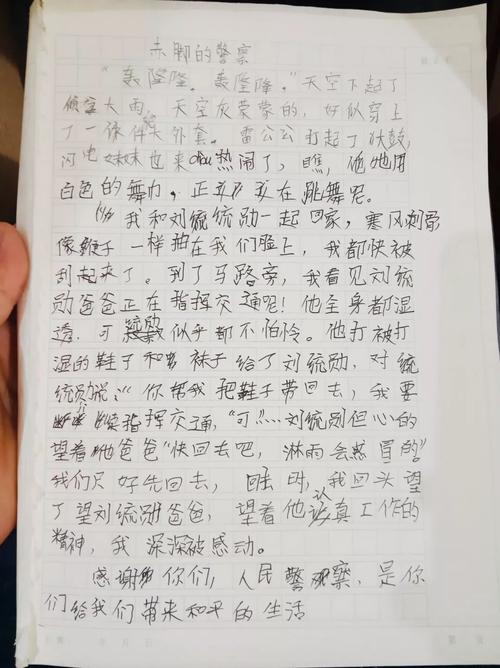 赤脚的警察
“轰隆隆。轰隆隆。”天空下起了
倾盆大雨,天空灰蒙蒙的,好似穿上
了一件大外套。雷公公打起了大鼓
闪电妹妹也来凑热闹了,瞧,她用
白色的舞巾,正在跳舞呢。
我和刘统勋一起回家,寒风刺骨
像鞭子一样拍在我们脸上,我都快被
刮起来了。到了马路旁,我看见刘统
勋爸爸正在指挥交通呢!他全身都湿
透,可似乎都不怕怜。他打被打
湿的鞋子和袜子给了刘统勋,对统
统勋说:“你帮我把鞋子带回去,我要
继续指挥交通,”“可”……刘统勋但心的
望着他爸爸“快回去吧,淋雨会感冒的”
我们只好先回去,临时,我回头望
了望刘统勋爸爸,望着他认真工作的
精神,我深深被感动。
感谢你们,人民警察,是你
们给我们带来和平的生活